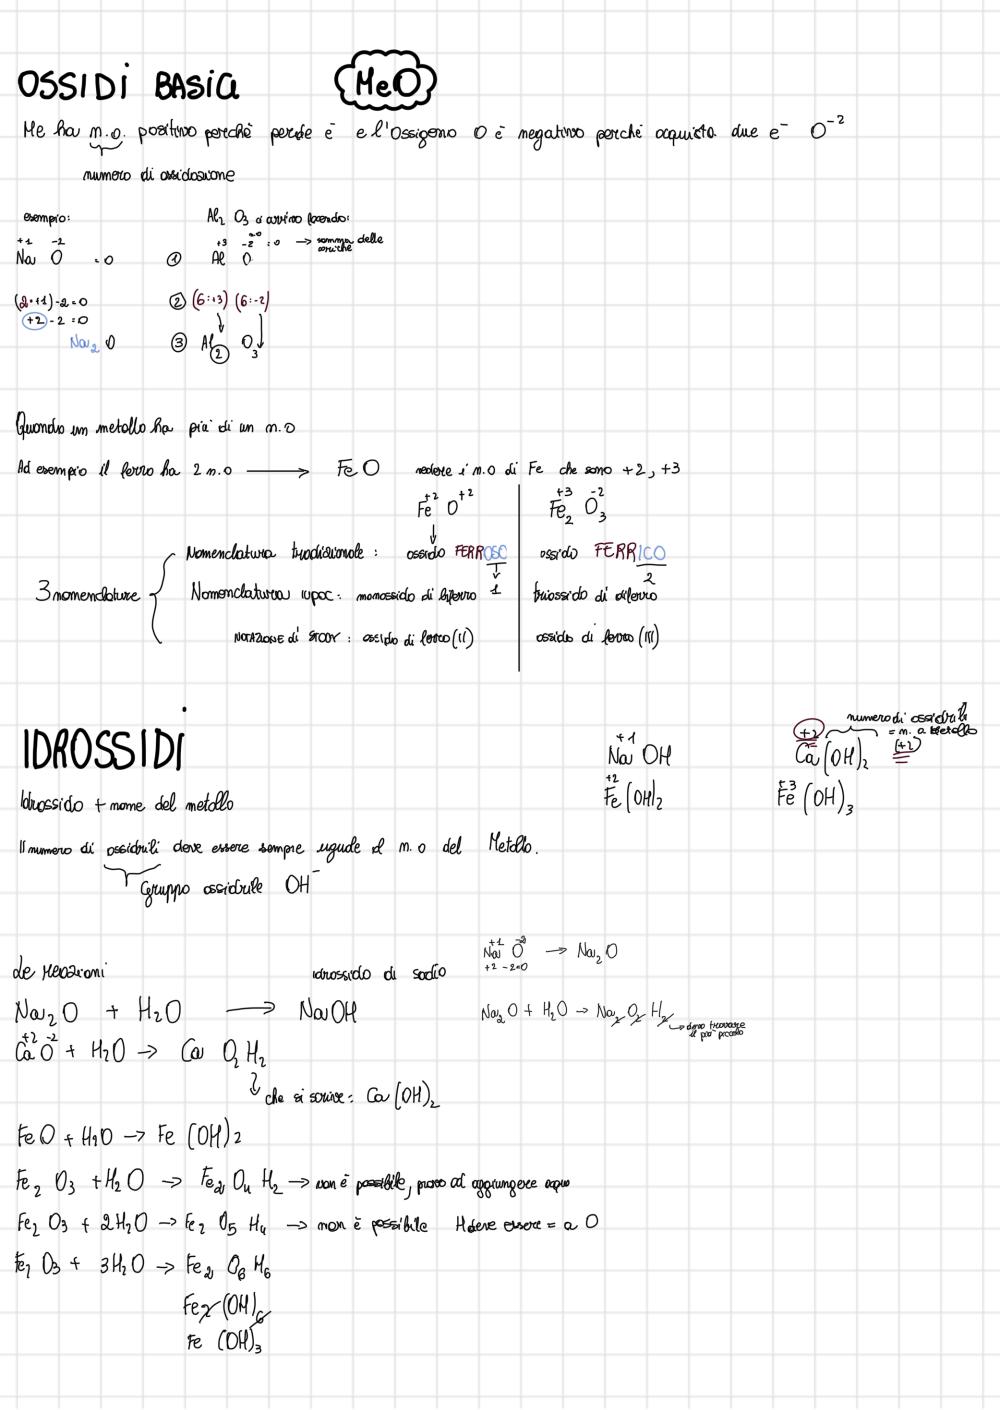 OSSIDI BASICI MeO
Me ha n.o. positivo perchè perde e⁻ e l'Ossigeno O è negativo perchè acquista due e⁻ O⁻²
numero di ossidazione
esempio: Al₂ O₃ ci arrivo facendo:
+1 -2 +3 -2 =0 → somma delle cariche
Na O =0 ① Al O
(2·+1)-2=0 ② (6:+3) (6:-2)
+2 -2 =0
Na₂ O ③ Al₂ O₃
Quando un metallo ha più di un n.o
Ad esempio il ferro ha 2 n.o → FeO vedere i n.o di Fe che sono +2, +3
Fe⁺² O⁺² +3 -2
Fe₂ O₃
3 nomenclature
Nomenclatura tradizionale: ossido FERROSO ossido FERRICO
1 2
Nomenclatura iupac: monossido di ferro triossido di diferro
NOTAZIONE di STOCK: ossido di ferro (II) ossido di ferro (III)
IDROSSIDI
+1 +2 numero di ossidrili = n. a Metallo
Na OH Ca (OH)₂ (+2)
+2 +3
Fe (OH)₂ Fe (OH)₃
Idrossido + nome del metallo
Il numero di ossidrili deve essere sempre uguale al n.o del Metallo.
Gruppo ossidrile OH⁻
+1 -2
Na O → Na₂O
+2 -2=0
Le Reazioni idrossido di sodio
Na₂O + H₂O → NaOH
Na₂O + H₂O → Na₂ O₂ H₂ → devo trovare il più piccolo
+2 -2
Ca O + H₂O → Ca O₂ H₂
che si scrive: Ca (OH)₂
FeO + H₂O → Fe (OH)₂
Fe₂ O₃ + H₂O → Fe₂ O₄ H₂ → non è possibile, provo ad aggiungere acqua
Fe₂ O₃ + 2H₂O → Fe₂ O₅ H₄ → non è possibile H deve essere = a O
Fe₂ O₃ + 3H₂O → Fe₂ O₆ H₆
Fe₂ (OH)₆
Fe (OH)₃